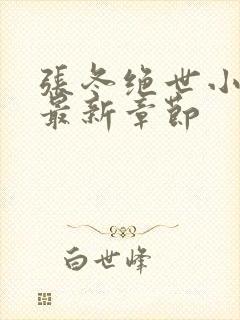 張冬绝世小
最新章節
白世峰